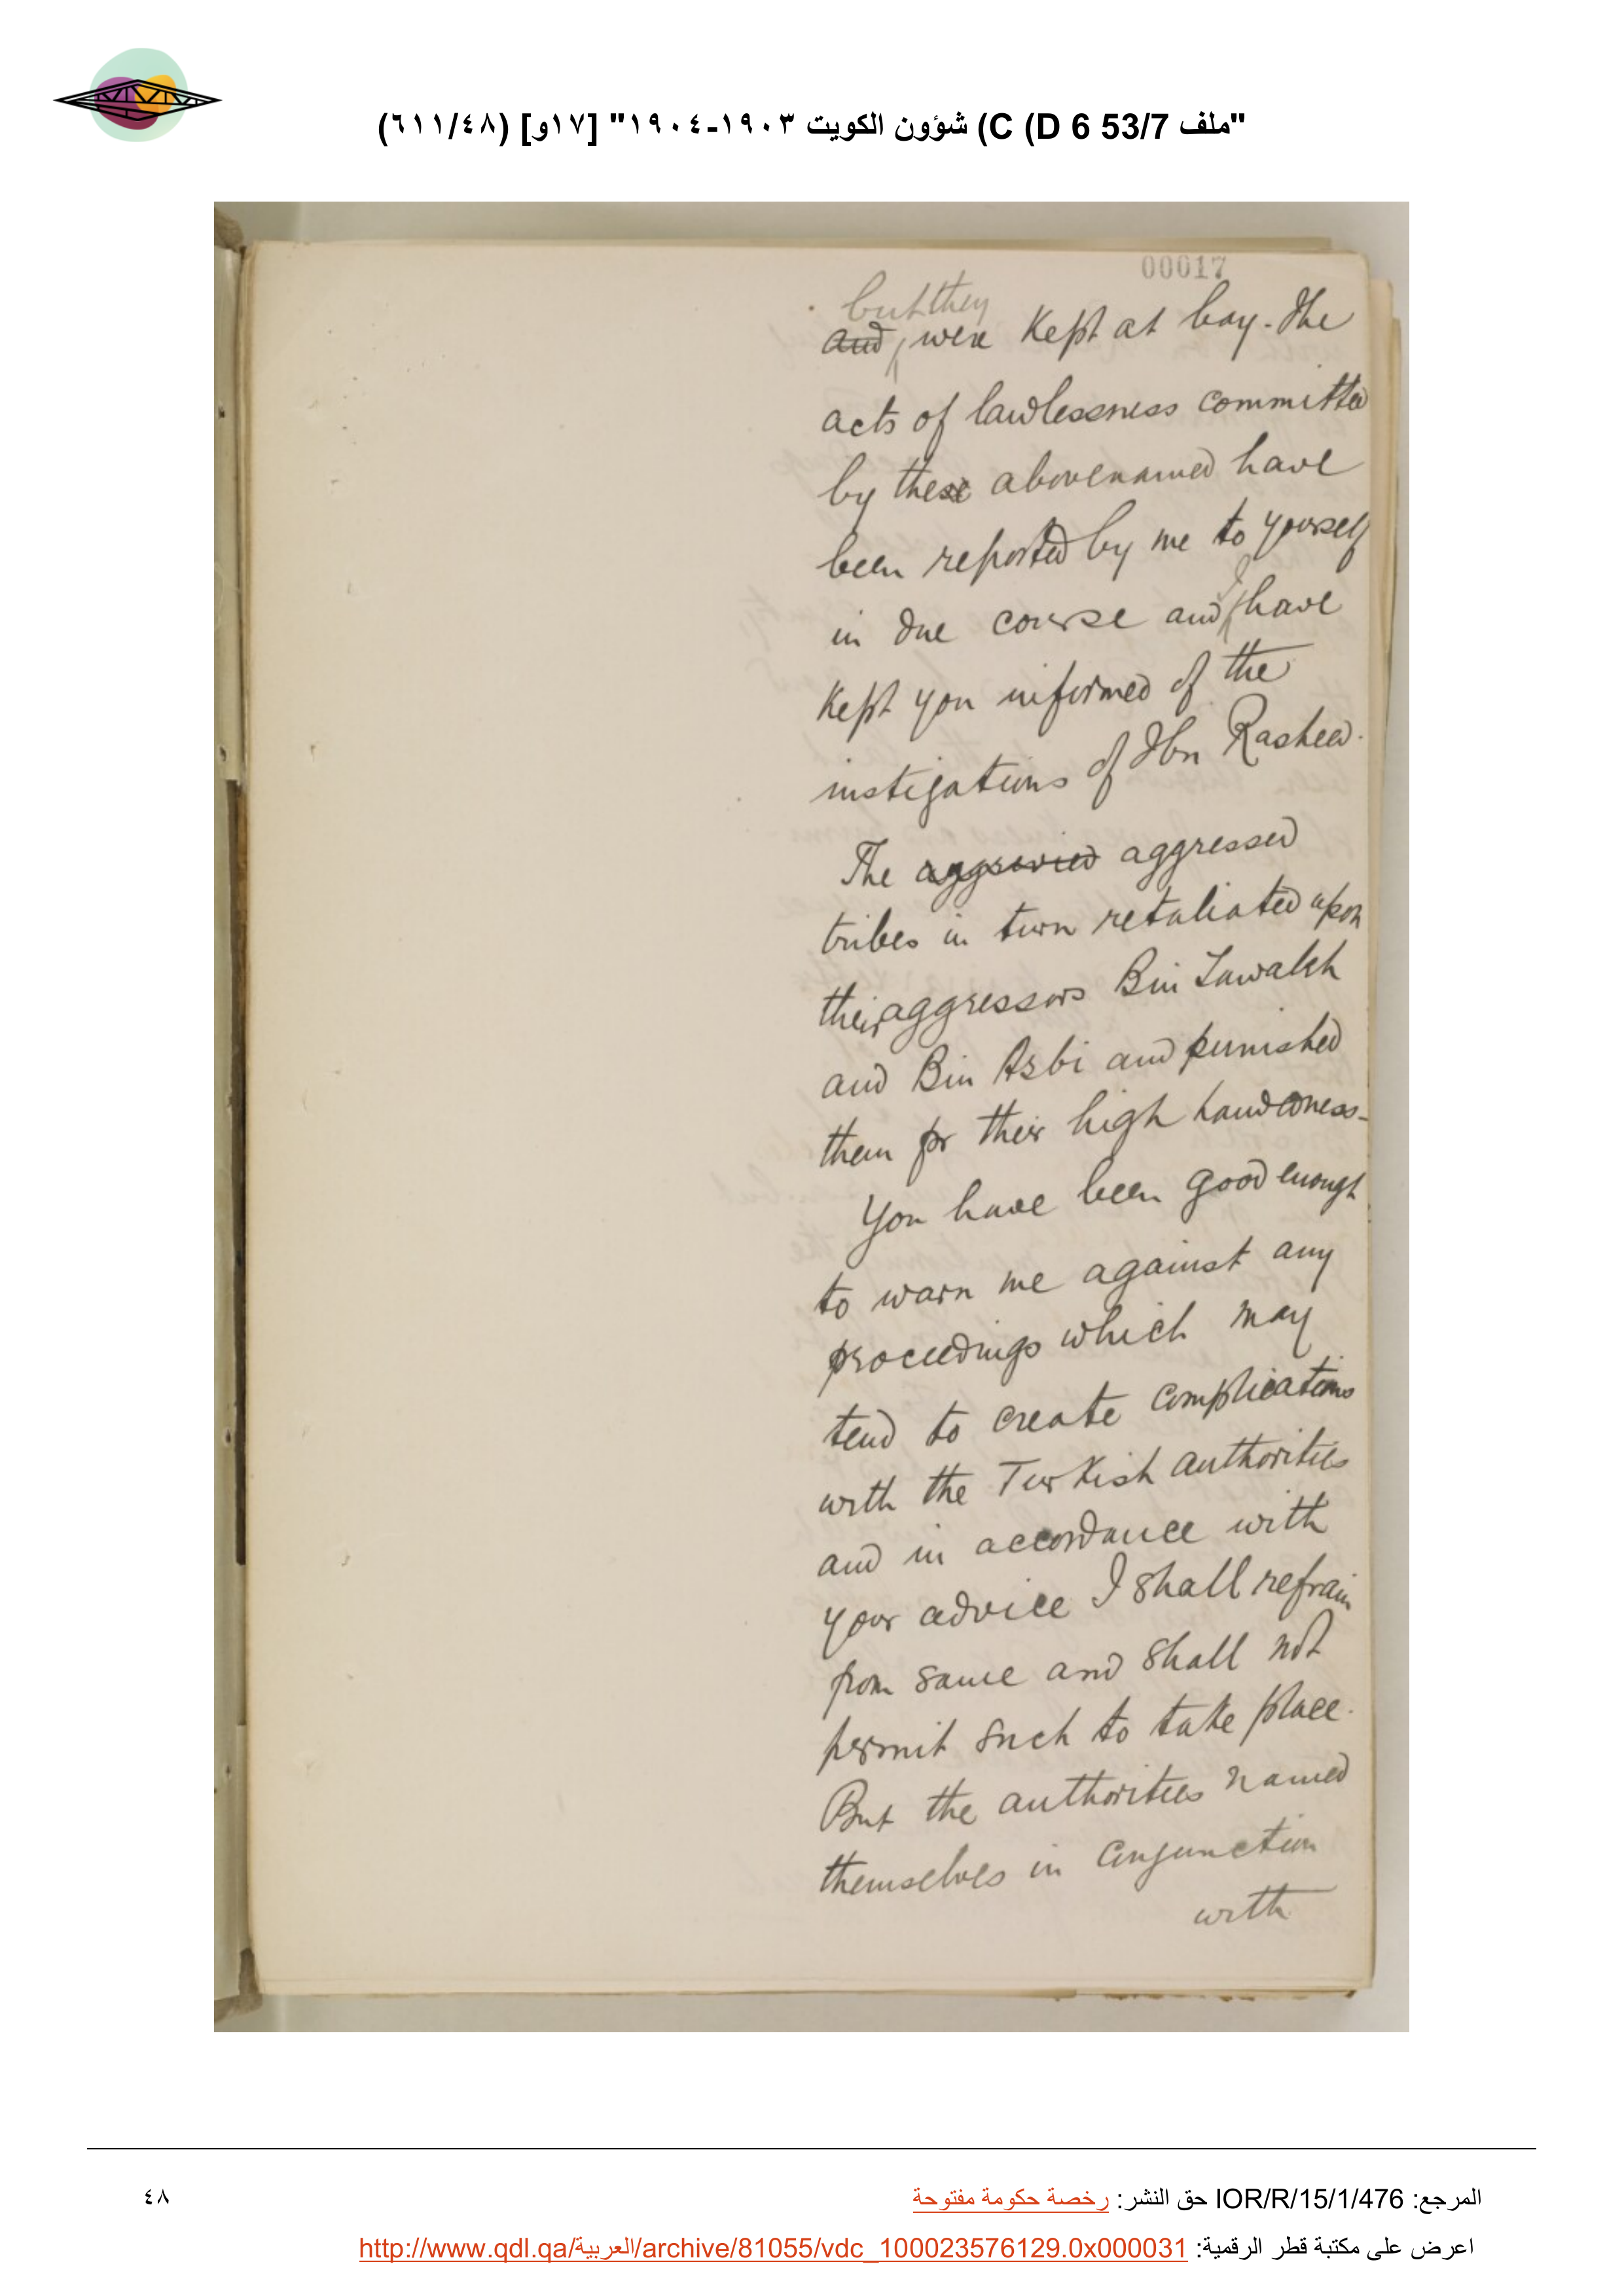 "ملف 53/7 D 6) C) شؤون الكويت ١٩٠٣-١٩٠٤" [١٧و] (٦١١/٤٨)
00017
but they
and were kept at bay. The
acts of lawlessness committed
by these abovenamed have
been reported by me to yourself
in due course and I have
kept you informed of the
instigations of Ibn Rasheed.
The aggrevied aggressed
tribes in turn retaliated upon
their aggressors Bin
and Bin Azbi and punished
them for their high handedness-
You have been good enough
to warn me against any
proceedings which may
tend to create complications
with the Turkish authorities
and in accordance with
your advice I shall refrain
from same and shall not
permit such to take place.
But the authorities named
themselves in conjunction
with
المرجع: IOR/R/15/1/476 حق النشر: رخصة حكومة مفتوحة
٤٨
اعرض على مكتبة قطر الرقمية: http://www.qdl.qa/العربية/archive/81055/vdc_100023576129.0x000031